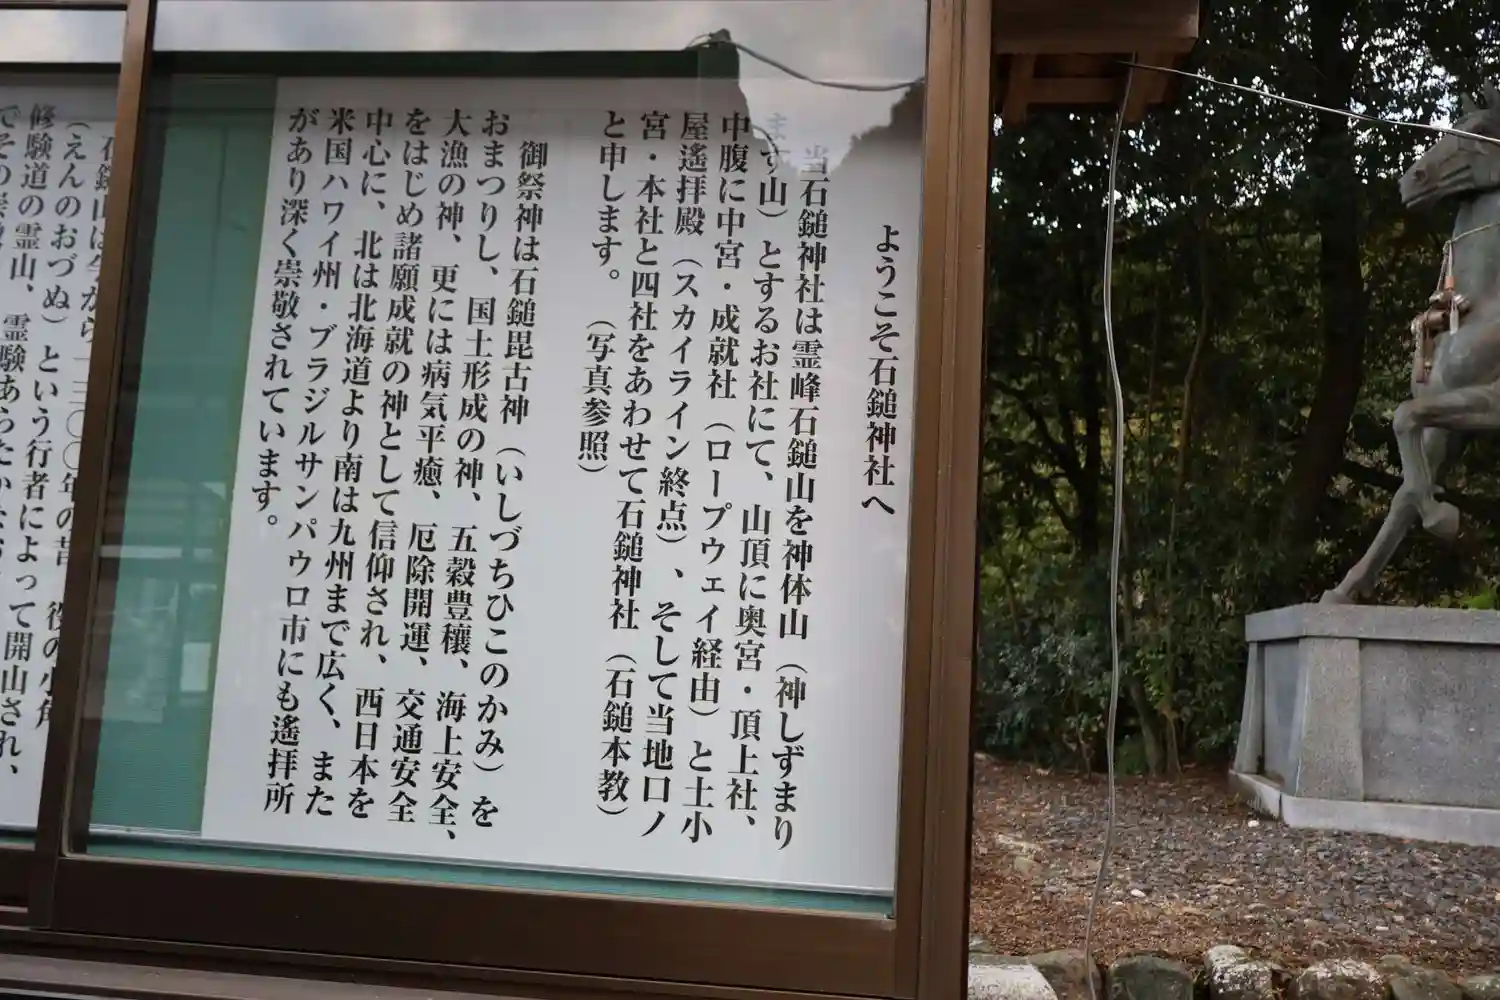 ようこそ石鎚神社へ
当石鎚神社は霊峰石鎚山を神体山（神しずまり
ます山）とするお社にて、山頂に奥宮・頂上社、
中腹に中宮・成就社（ロープウェイ経由）と土小
屋遙拝殿（スカイライン終点）、そして当地口ノ
宮・本社と四社をあわせて石鎚神社（石鎚本教）
と申します。（写真参照）
御祭神は石鎚毘古神（いしづちひこのかみ）を
おまつりし、国土形成の神、五穀豊穰、海上安全、
大漁の神、更には病気平癒、厄除開運、交通安全
をはじめ諸願成就の神として信仰され、西日本を
中心に、北は北海道より南は九州まで広く、また
米国ハワイ州・ブラジルサンパウロ市にも遙拝所
があり深く崇敬されています。
石鎚山は今から一三〇〇年の昔 役の小角
（えんのおづぬ）という行者によって開山され、
修験道の霊山、霊験あらたか